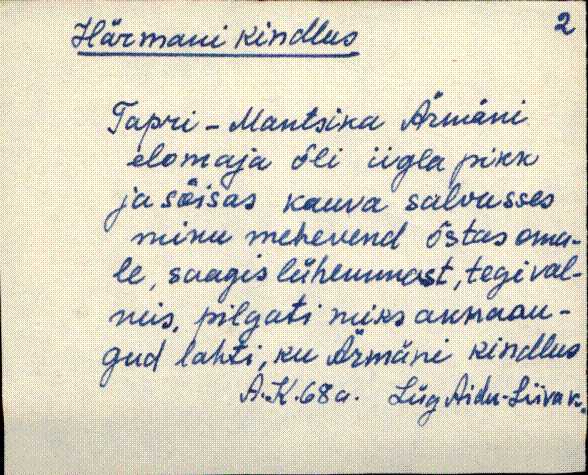 Härmani kindlus
2
Tapri - Mantsika Ärmäni
elomaja õli iigla pikk
ja sõisas kauva salvusses
minu mehevend õstas oma-
le, saagis lühemmast, tegi val-
neis, pilgati miks aknaau-
gud lahti, ku Ärmäni kindlus
A.K. 68 a. Lüg Aidu-Liiva k.